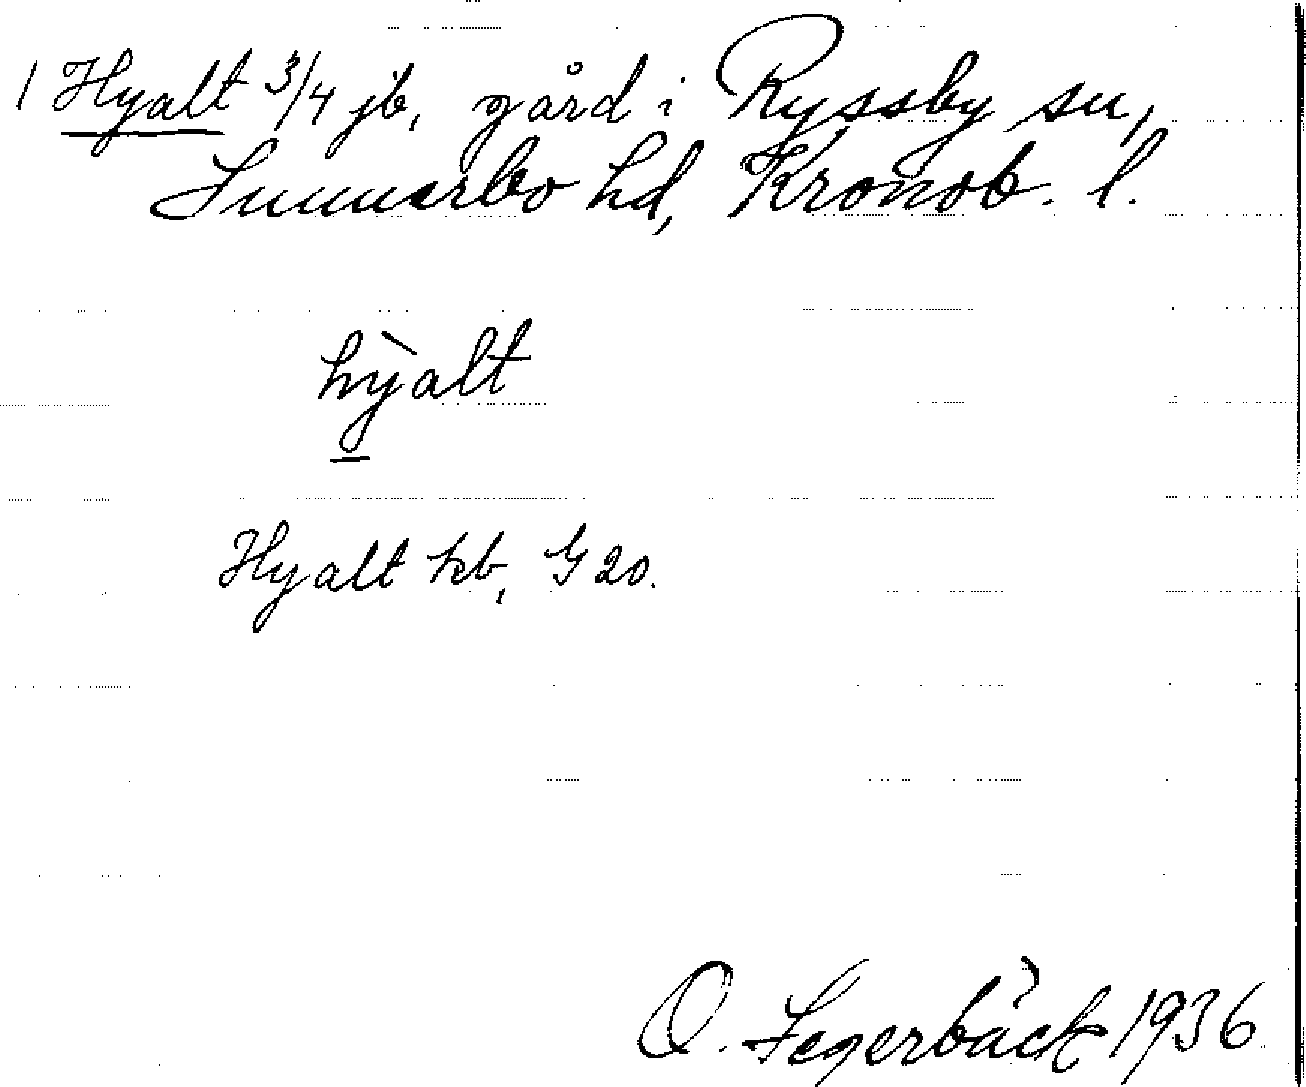 1 Hyalt 3/4 jb, gård i Ryssby sn,
Sunnerbo hd, Kronob. l.
hỳ̱alt
Hyalt kb, G 20.
O. Segerbäck 1936